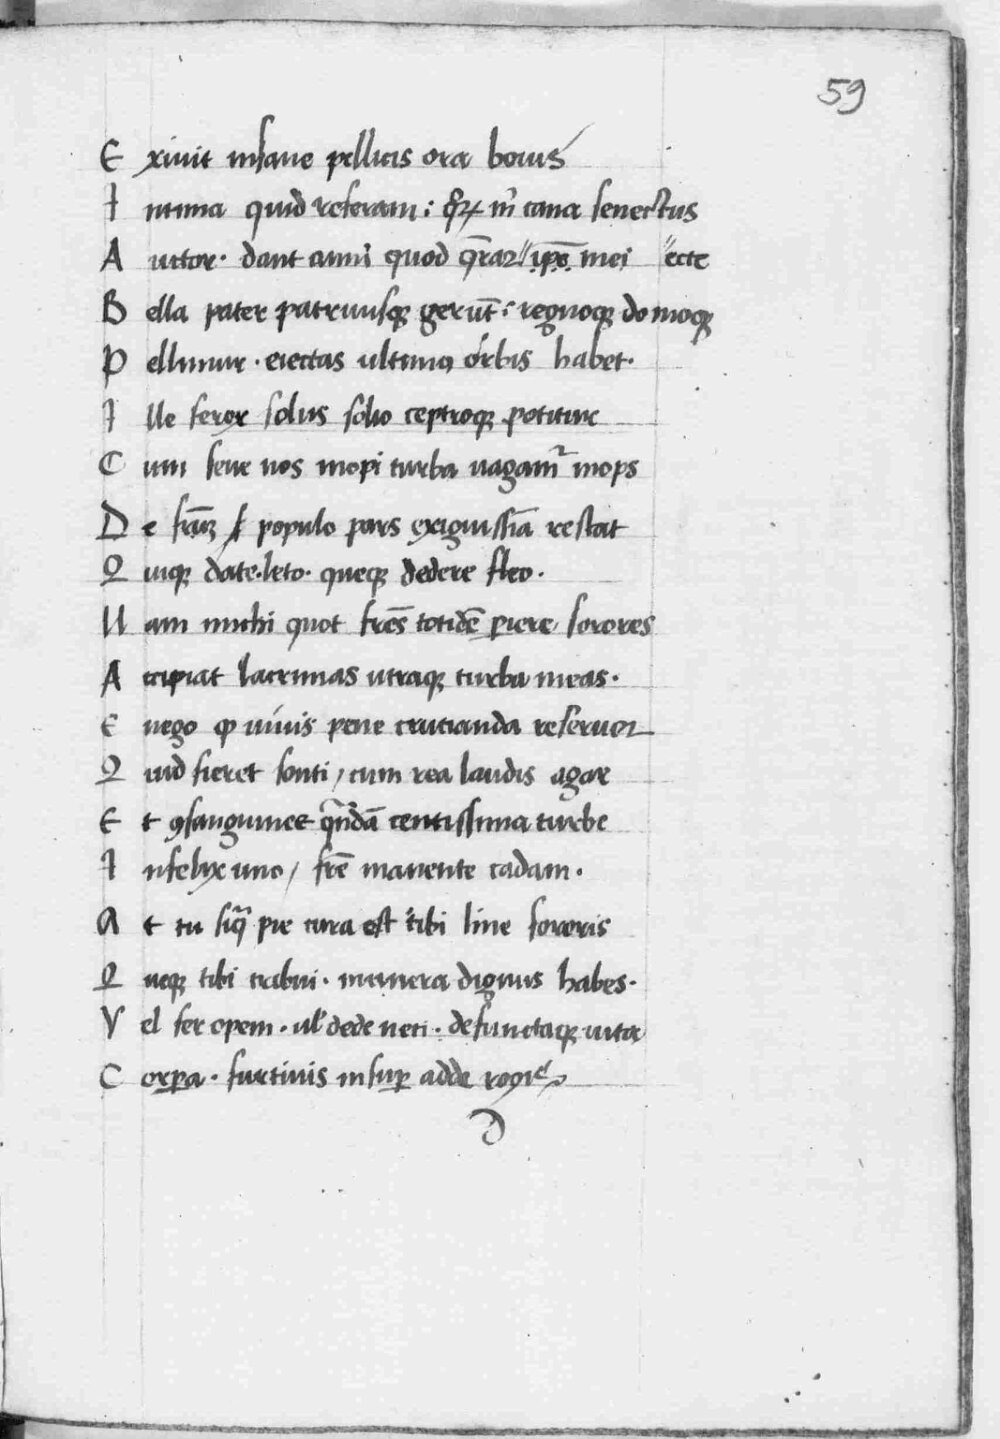 59
Exiuit insane pellicis ora bouis
Intima quid referam: quoꝝ mͥ cana senectus
Auctor. dant anni quod q̄rar // ip̄e mei // ecte
Bella pater patruusqꝫ gerūt: regnoqꝫ domoqꝫ
Pellimur. eiectas ultimus orbis habet.
Ille ferox solus solio ceptroqꝫ potitur
Cum sene nos inopi turba uagamᷣ inops
De frūꝫ populo pars exiguissīa restat
Quiqꝫ date. leto. queqꝫ dedere fleo.
Nam michi quot frēs totidē ꝑiere sorores
Accipiat lacrimas utraqꝫ turba meas.
En ego ꝙ uiuis pene crucianda reseruor
Quid fieret sonti / cum rea laudis agar
Et ꝯsanguinee qͣndā centissima turbe
Infelyx uno / frē manente cadam.
At tu siqͣ pie cura est tibi line sororis
Queqꝫ tibi tribui. munera dignus habes.
Vel fer opem. ul' dede neci. defunctaqꝫ uita
Corꝑa. furtiuis insuꝑ adde rogis